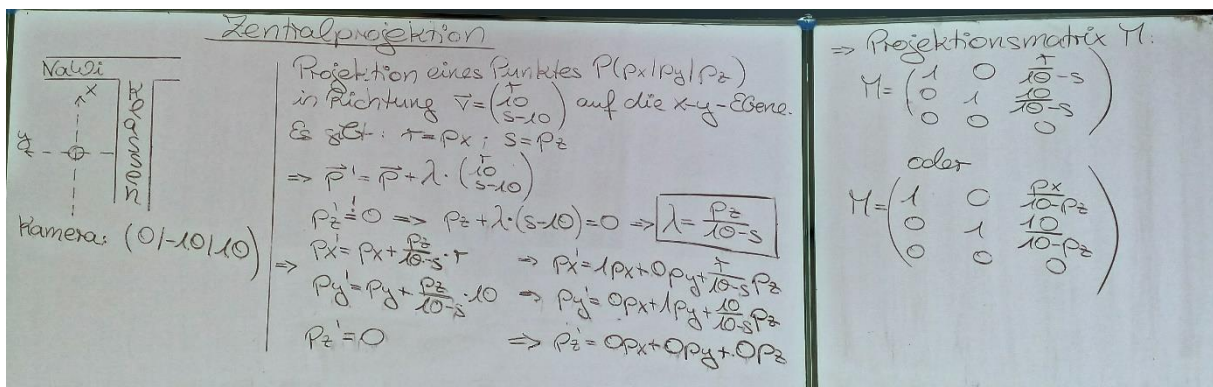 Zentralprojektion
NaWi
Klassen
x
y
Kamera: (0/-10/10)
Projektion eines Punktes P(px/py/pz)
in Richtung v⃗ = (r 10 s-10) auf die x-y-Ebene.
Es gilt: r = px ; s = pz
⇒ p⃗' = p⃗ + λ · (r 10 s-10)
pz' != 0 ⇒ pz + λ·(s-10) = 0 ⇒ λ = pz/(10-s)
⇒ px' = px + pz/(10-s) · r ⇒ px' = 1px + 0py + r/(10-s) pz
py' = py + pz/(10-s) · 10 ⇒ py' = 0px + 1py + 10/(10-s) pz
pz' = 0 ⇒ pz' = 0px + 0py + 0pz
⇒ Projektionsmatrix M:
M = (1 0 r/(10-s)
0 1 10/(10-s)
0 0 0)
oder
M = (1 0 px/(10-pz)
0 1 10/(10-pz)
0 0 0)